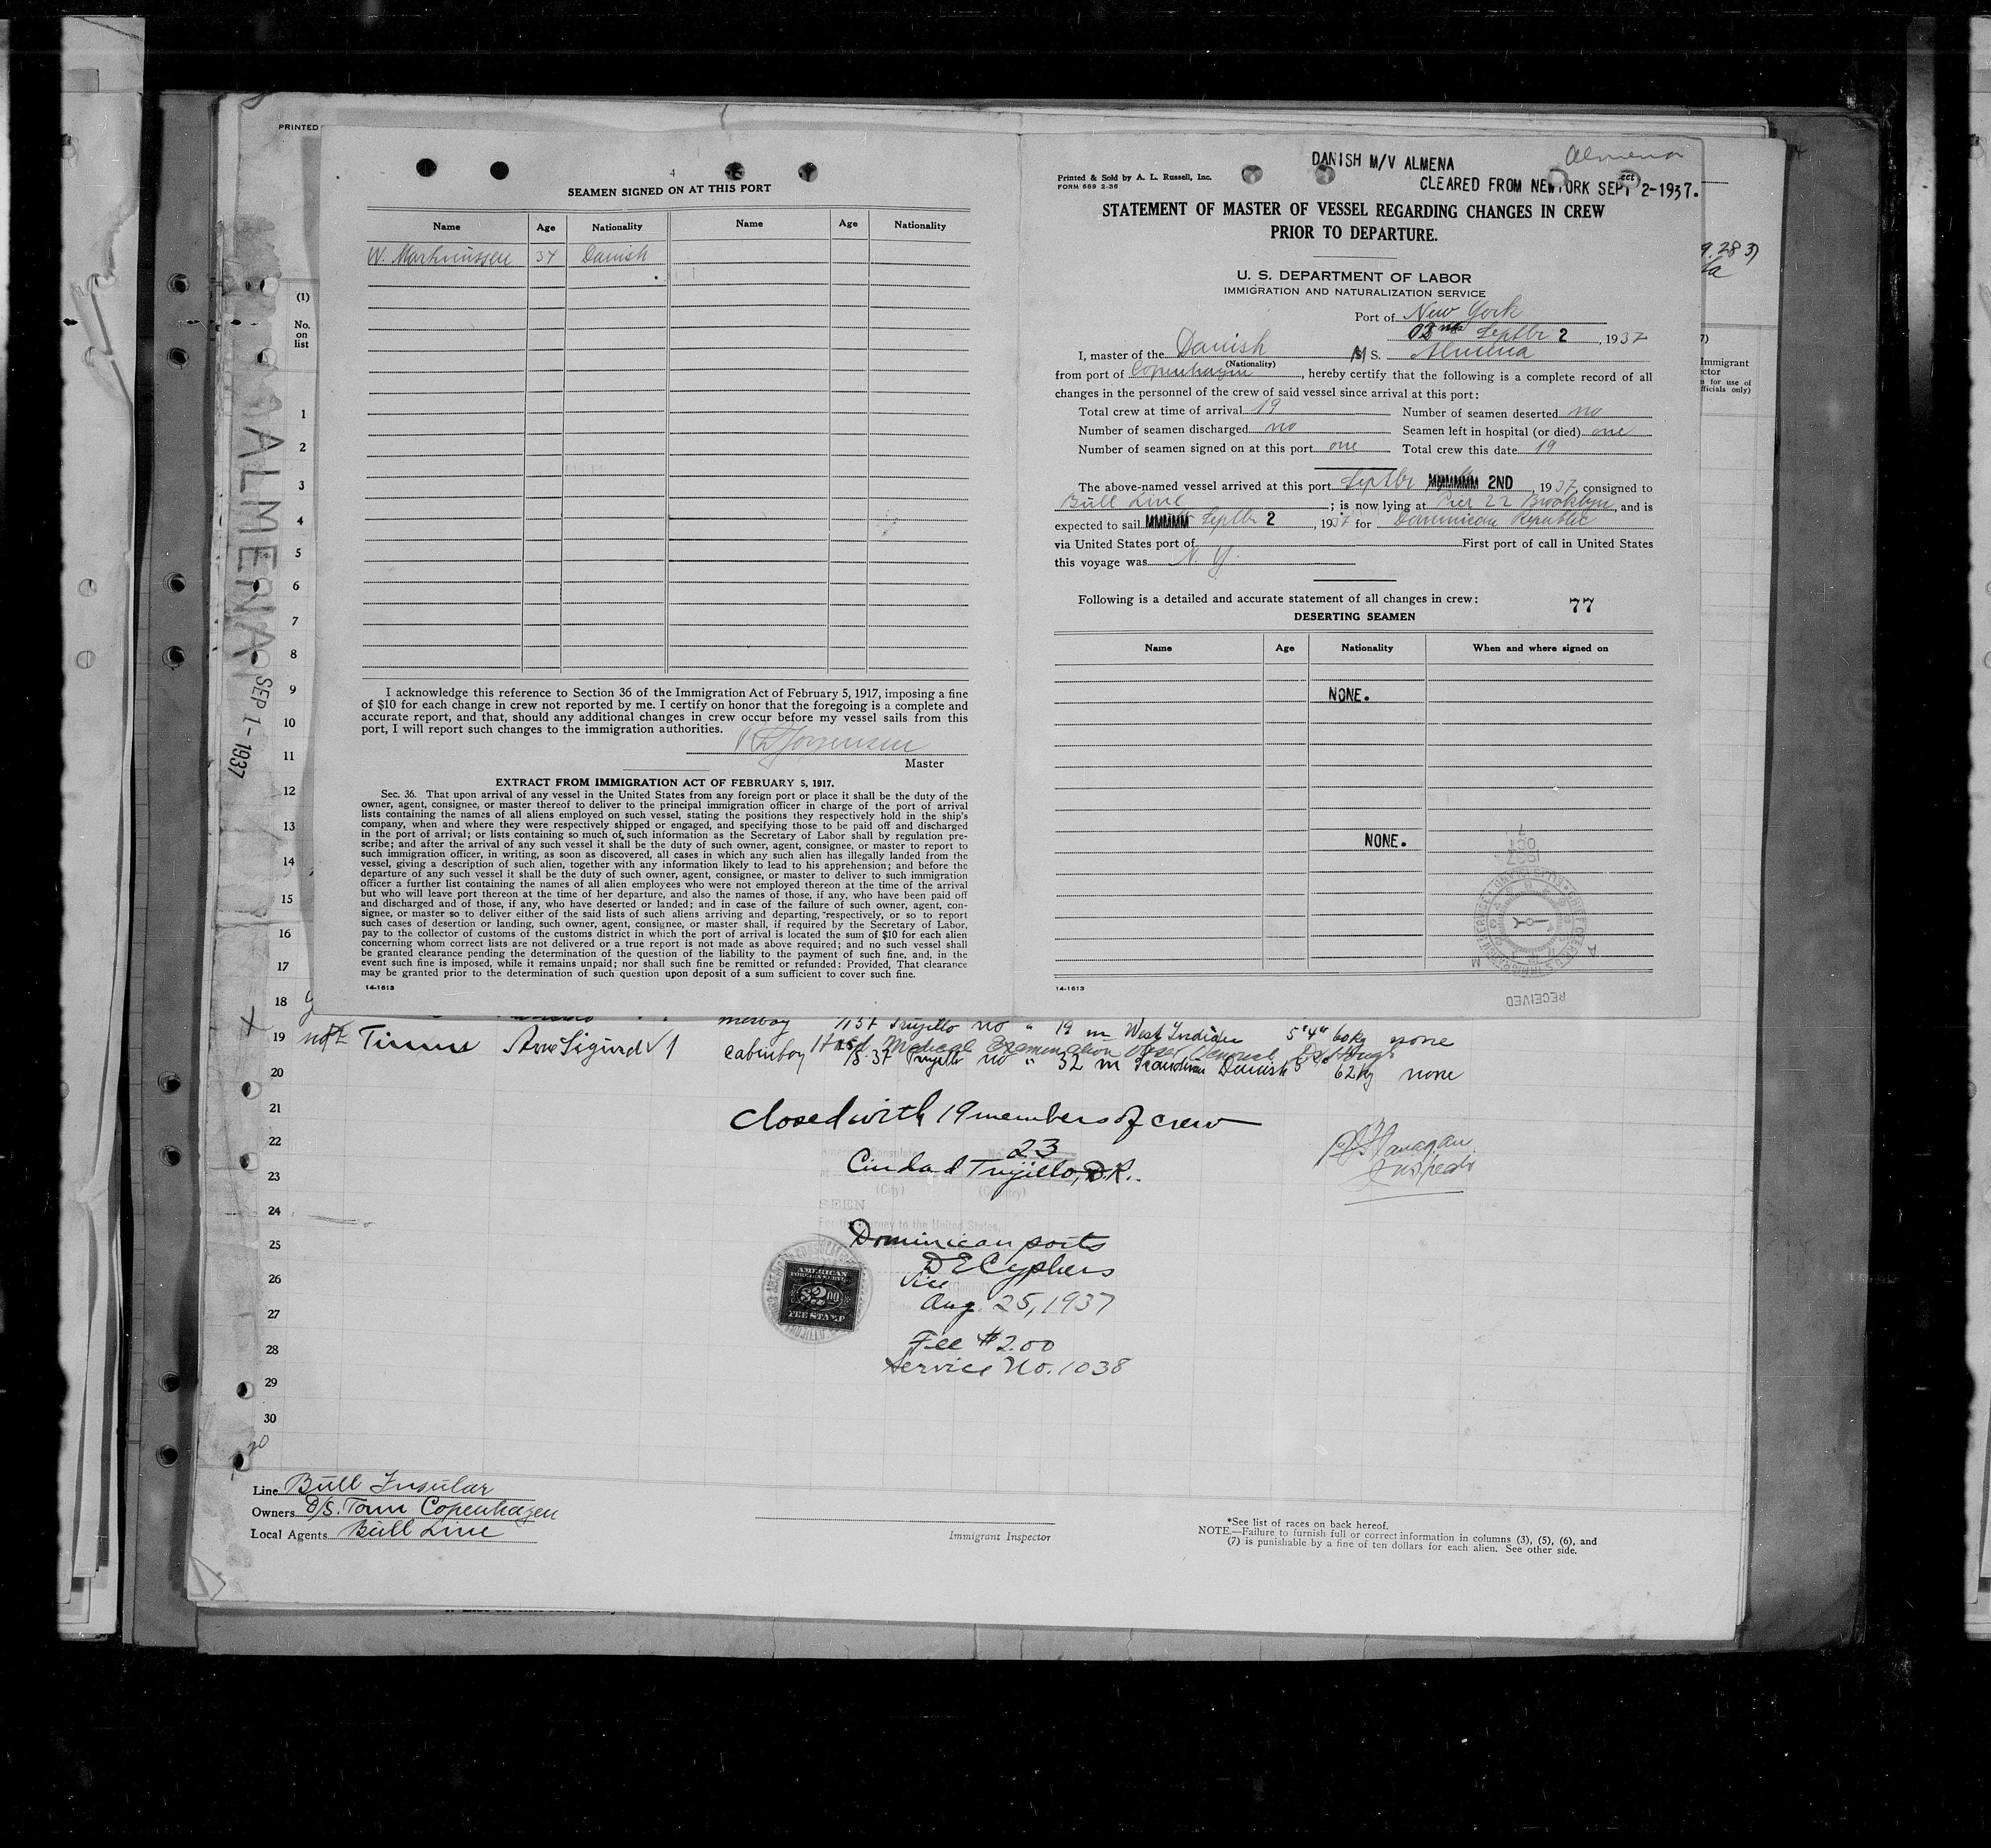 PRINTED
4
SEAMEN SIGNED ON AT THIS PORT
Name Age Nationality Name Age Nationality
W. Martinussen 34 Danish
I acknowledge this reference to Section 36 of the Immigration Act of February 5, 1917, imposing a fine
of $10 for each change in crew not reported by me. I certify on honor that the foregoing is a complete and
accurate report, and that, should any additional changes in crew occur before my vessel sails from this
port, I will report such changes to the immigration authorities.
Jorgensen
Master
EXTRACT FROM IMMIGRATION ACT OF FEBRUARY 5, 1917.
Sec. 36. That upon arrival of any vessel in the United States from any foreign port or place it shall be the duty of the
owner, agent, consignee, or master thereof to deliver to the principal immigration officer in charge of the port of arrival
lists containing the names of all aliens employed on such vessel, stating the positions they respectively hold in the ship's
company, when and where they were respectively shipped or engaged, and specifying those to be paid off and discharged
in the port of arrival; or lists containing so much of such information as the Secretary of Labor shall by regulation pre-
scribe; and after the arrival of any such vessel it shall be the duty of such owner, agent, consignee, or master to report to
such immigration officer, in writing, as soon as discovered, all cases in which any such alien has illegally landed from the
vessel, giving a description of such alien, together with any information likely to lead to his apprehension; and before the
departure of any such vessel it shall be the duty of such owner, agent, consignee, or master to deliver to such immigration
officer a further list containing the names of all alien employees who were not employed thereon at the time of the arrival
but who will leave port thereon at the time of her departure, and also the names of those, if any, who have been paid off
and discharged and of those, if any, who have deserted or landed; and in case of the failure of such owner, agent, con-
signee, or master so to deliver either of the said lists of such aliens arriving and departing, respectively, or so to report
such cases of desertion or landing, such owner, agent, consignee, or master shall, if required by the Secretary of Labor,
pay to the collector of customs of the customs district in which the port of arrival is located the sum of $10 for each alien
concerning whom correct lists are not delivered or a true report is not made as above required; and no such vessel shall
be granted clearance pending the determination of the question of the liability to the payment of such fine, and, in the
event such fine is imposed, while it remains unpaid; nor shall such fine be remitted or refunded: Provided, That clearance
may be granted prior to the determination of such question upon deposit of a sum sufficient to cover such fine.
14-1613
DANISH M/V ALMENA
Almena
Printed & Sold by A. L. Russell, Inc.
FORM 689 2-36
CLEARED FROM NEW YORK SEPT 2-1937.
STATEMENT OF MASTER OF VESSEL REGARDING CHANGES IN CREW
PRIOR TO DEPARTURE.
U. S. DEPARTMENT OF LABOR
IMMIGRATION AND NATURALIZATION SERVICE
Port of New York
Septbr 2, 1937
I, master of the Danish M S. Almena
(Nationality)
from port of Copenhagen, hereby certify that the following is a complete record of all
changes in the personnel of the crew of said vessel since arrival at this port:
Total crew at time of arrival 19 Number of seamen deserted no
Number of seamen discharged no Seamen left in hospital (or died) one
Number of seamen signed on at this port one Total crew this date 19
The above-named vessel arrived at this port Septbr 2ND, 1937, consigned to
Bull Line; is now lying at Pier 22 Brooklyn, and is
expected to sail Septbr 2, 1937 for Dominican Republic
via United States port of First port of call in United States
this voyage was N. Y.
Following is a detailed and accurate statement of all changes in crew: 77
DESERTING SEAMEN
Name Age Nationality When and where signed on
NONE.
NONE.
1937
OCT
7
RECEIVED
14-1613
9.28 3)
7)
Immigrant
ctor
n for use of
fficials only)
ALMENA
SEP 1-1937
(1)
No.
on
list
1
2
3
4
5
6
7
8
9
10
11
12
13
14
15
16
17
18
messboy Trujillo no " 19 m West Indian 5'4" 60kg none
19 Timm Arne Sigurd 1 cabinboy Trujillo no " 32 m Scandinav Danish 62kg none
Medical Examination
20
21
closed with 19 members of crew
22
23
23
Ciudad Trujillo, D.R.
(City) (Country)
24
SEEN
For the journey to the United States,
25
Dominican ports
D E Cyphers
26
Vice
Aug. 25, 1937
27
AMERICAN
FOREIGN SERVICE
$2.00
FEE STAMP
28
Fee $2.00
Service No. 1038
29
30
Flanagan
Inspector
Line Bull Insular
Owners D/S. Torm Copenhagen
Local Agents Bull Line
Immigrant Inspector
*See list of races on back hereof.
NOTE.—Failure to furnish full or correct information in columns (3), (5), (6), and
(7) is punishable by a fine of ten dollars for each alien. See other side.